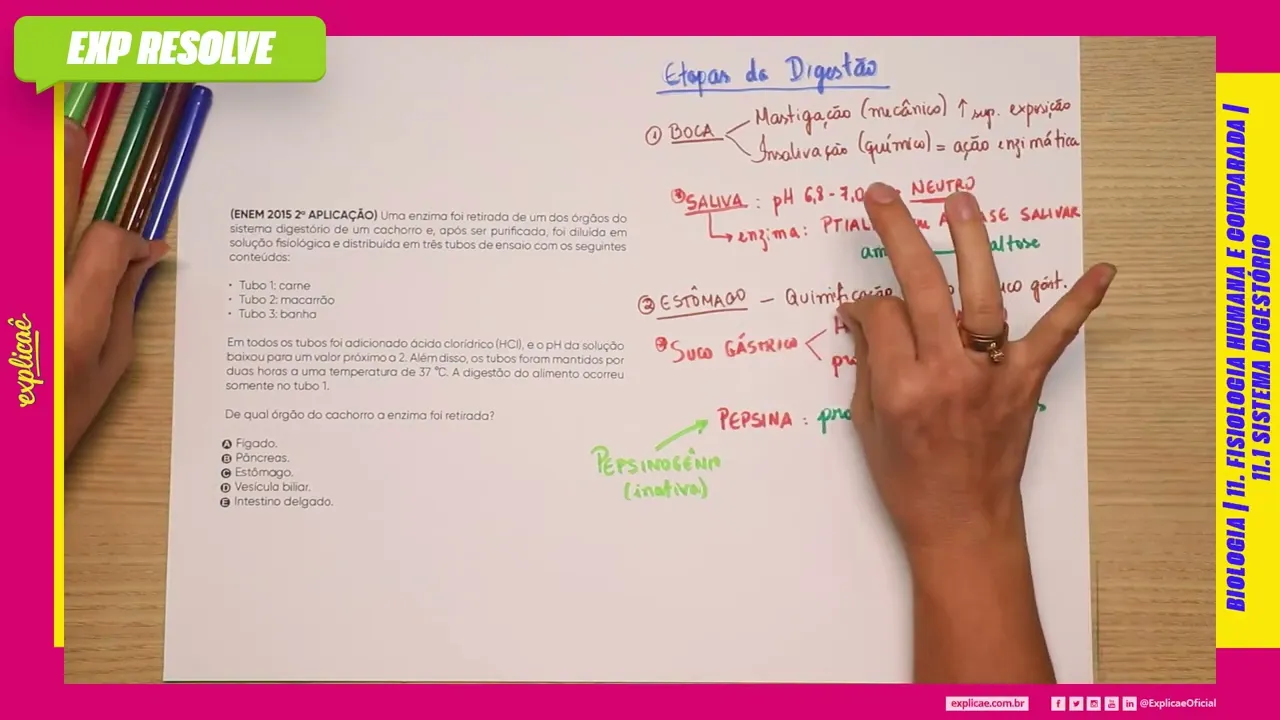 EXP RESOLVE
(ENEM 2015 2ª APLICAÇÃO) Uma enzima foi retirada de um dos órgãos do
sistema digestório de um cachorro e, após ser purificada, foi diluída em
solução fisiológica e distribuída em três tubos de ensaio com os seguintes
conteúdos:
• Tubo 1: carne
• Tubo 2: macarrão
• Tubo 3: banha
Em todos os tubos foi adicionado ácido clorídrico (HCl), e o pH da solução
baixou para um valor próximo a 2. Além disso, os tubos foram mantidos por
duas horas a uma temperatura de 37 °C. A digestão do alimento ocorreu
somente no tubo 1.
De qual órgão do cachorro a enzima foi retirada?
A Fígado.
B Pâncreas.
C Estômago.
D Vesícula biliar.
E Intestino delgado.
Etapas da Digestão
① BOCA
Mastigação (mecânico) ↑ sup. exposição
Insalivação (químico) = ação enzimática
SALIVA : pH 6,8 - 7,0 NEUTRO
→ enzima: SALIVAR
② ESTÔMAGO — Quimificação gást.
SUCO GÁSTRICO
PEPSINA :
PEPSINOGÊNIO
(inativa)
explicaê
BIOLOGIA | 11. FISIOLOGIA HUMANA E COMPARADA |
11.1 SISTEMA DIGESTÓRIO
explicae.com.br
@ExplicaeOficial